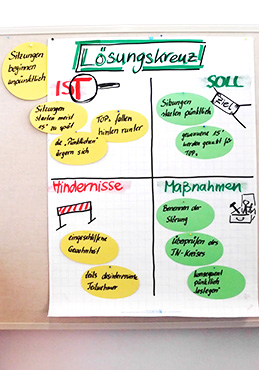 Sitzungen
beginnen
unpünktlich
Lösungskreuz
IST
SOLL
Sitzungen
starten meist
15' zu spät
TOPs fallen
hinten runter
die „Pünktlichen"
ärgern sich
Sitzungen
starten pünktlich
ZIEL
gewonnene 15'
werden genutzt für
TOPs
Hindernisse
Maßnahmen
eingeschliffene
Gewohnheit
teils desinteressierte
Teilnehmer
Benennen der
Störung
Überprüfen des
TN-Kreises
konsequent
pünktlich
loslegen